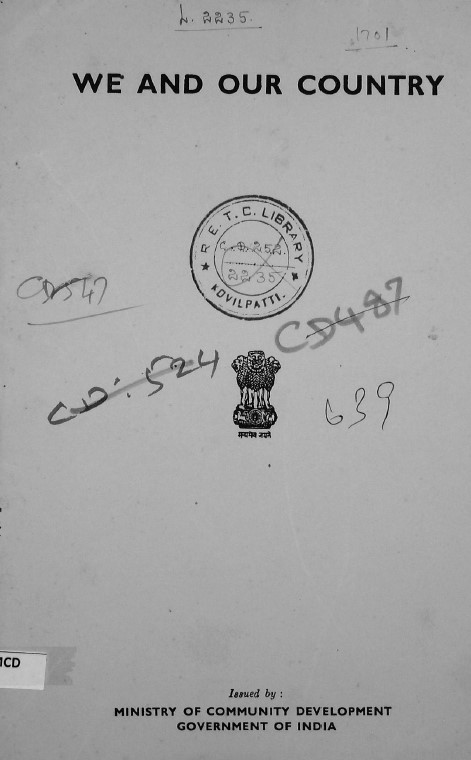 1701
WE AND OUR COUNTRY
R. E. T. C. LIBRARY
KOVILPATTI.
CD547
CD487
CD: 524
सत्यमेव जयते
639
1CD
Issued by :
MINISTRY OF COMMUNITY DEVELOPMENT
GOVERNMENT OF INDIA